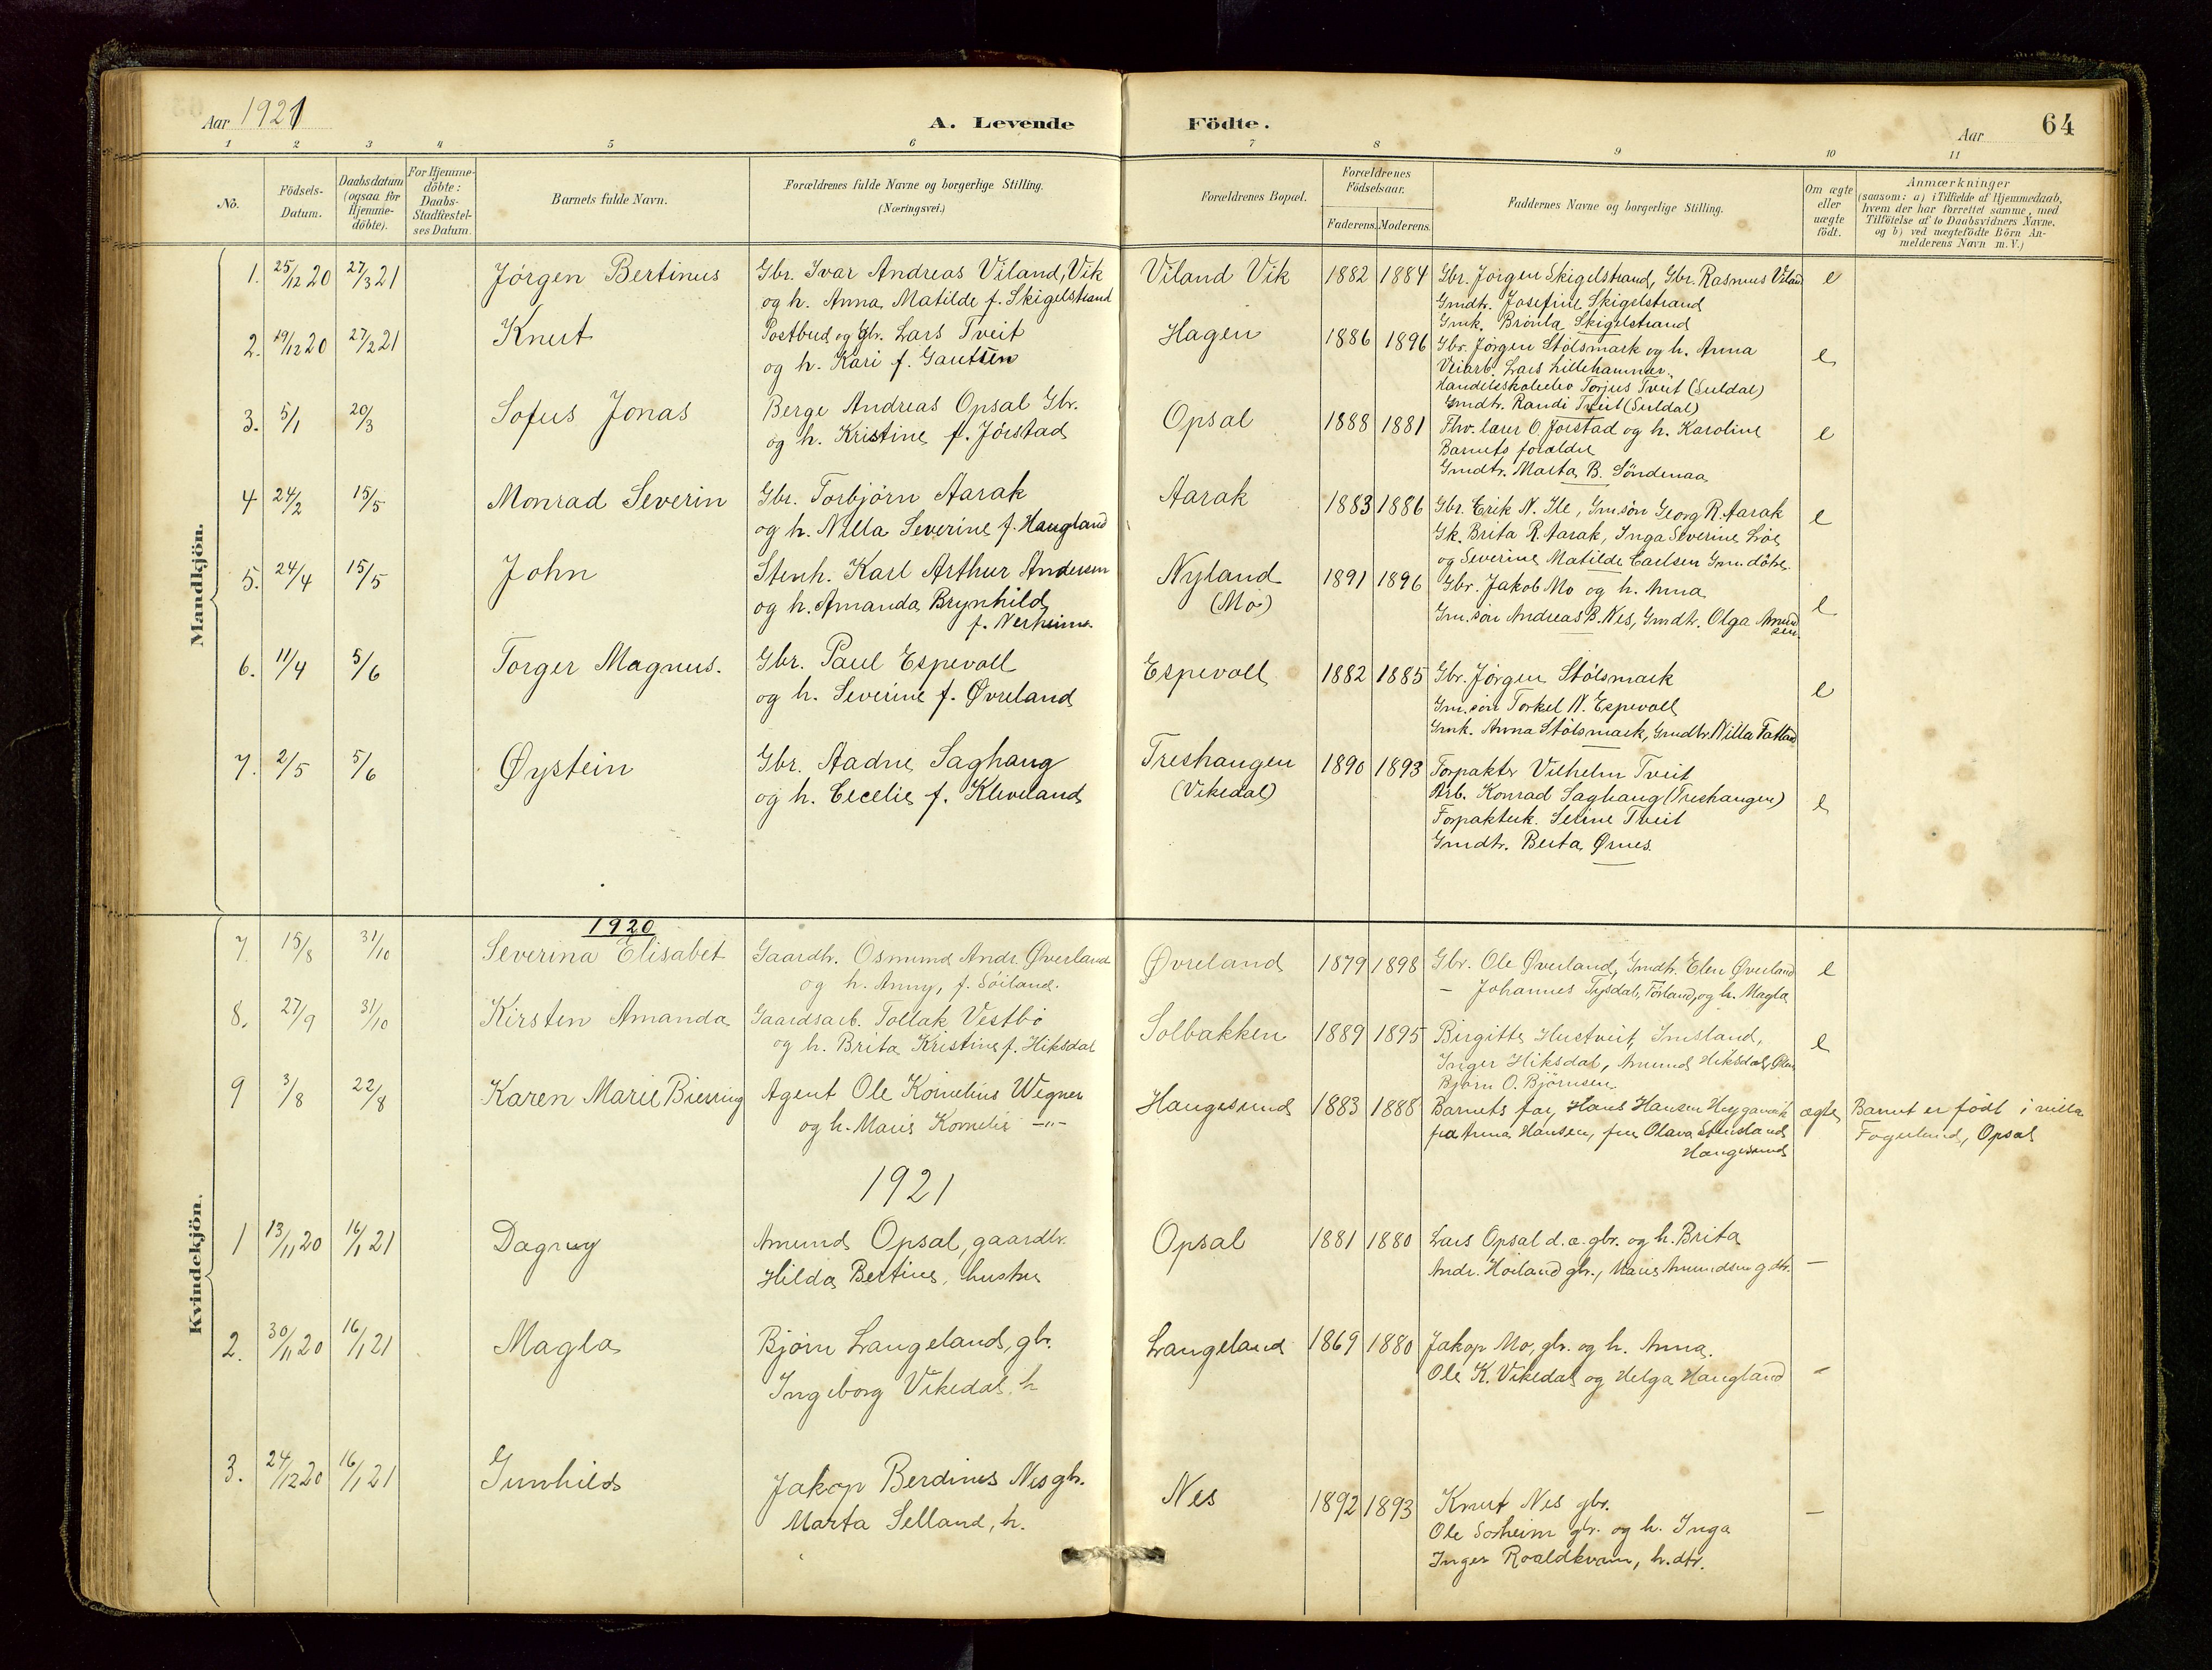 Aar 1921
A. Levende Födte.
Aar
64
1 2 3 4 5 6 7 8 9 10 11
No.
Födsels-Datum.
Daabsdatum (ogsaa for Hjemme-döbte).
For Hjemme-döbte: Daabs-Stadfæstel-ses Datum.
Barnets fulde Navn.
Forældrenes fulde Navne og borgerlige Stilling.
(Næringsvei.)
Forældrenes Bopæl.
Forældrenes Födselsaar.
Faderens. Moderens.
Faddernes Navne og borgerlige Stilling.
Om ægte eller uægte födt.
Anmærkninger
(saasom: a) i Tilfælde af Hjemmedaab,
hvem der har forrettet samme, med
Tilföielse af to Daabsvidners Navne.
og b) ved uægtefödte Börn An-
melderens Navn m. V.)
Mandkjön.
1. 25/12 20 27/3 21 Jörgen Bertinus Gbr. Ivar Andreas Viland, Vik Viland Vik 1882 1884 Gbr. Jörgen Skigelstrand, Gbr. Rasmus Viland e
og h. Anna Matilde f. Skigelstrand Gmdtr. Josefine Skigelstrand
Gmk. Brönla Skigelstrand
2. 19/12 20 27/2 21 Knut Postbud og Gbr. Lars Tveit Hagen 1886 1896 Gbr. Jörgen Stölsmark og h. Anna e
og h. Kari f. Gautün Veiarb. Lars Lillehammer
Handelsskoleelev Torjus Tveit (Suldal)
Gmdtr. Randi Tveit (Suldal)
3. 5/1 20/3 Sofus Jonas Berge Andreas Opsal Gbr. Opsal 1888 1881 Fhv. lærer O. Jörstad og h. Karoline e
og h. Kristine f. Jörstad Barnets forældre
Gmdtr. Marta B. Söndenaa
4 24/2 15/5 Monrad Severin Gbr. Torbjörn Aarak Aarak 1883 1886 Gbr. Erik N. Ile, Gm.sön Georg R. Aarak e
og h. Nilla Severine f. Haugland Gk. Brita R. Aarak, Inga Severine Löe
og Severine Matilde Carlsen Gm. dötre.
5. 24/4 15/5 John Stenh. Karl Arthur Andersen Nyland 1891 1896 Gbr. Jakob Mo og h. Anna e
og h. Amanda Brynhild (Mo) Gm.sön Andreas B. Nes, Gmdtr. Olga Amund
f. Nerheim. sen.
6. 11/4 5/6 Torger Magnus. Gbr. Paul Espevoll Espevoll 1882 1885 Gbr. Jörgen Stölsmark e
og h. Severine f. Øvreland Gm.sön Torkel N. Espevoll
Gmk. Anna Stölsmark, Gmdtr. Nilla Fatland
7. 2/5 5/6 Øystein Gbr. Aadne Saghaug Treshaugen 1890 1893 Forpakter Vilhelm Tveit e
og h. Cecelie f. Kleveland (Vikedal) Arb. Konrad Saghaug (Treshaugen)
Forpakterk. Seline Tveit
Gmdtr. Berta Ørnes.
Kvindekjön.
1920
7. 15/8 31/10 Severina Elisabet Gaardbr. Osmund Andr. Øverland Øvreland 1879 1898 Gbr. Ole Øverland, Gmdtr. Elen Øverland e
og h. Anny, f. Söiland. – Johannes Tysdal, Törland, og h. Magla
8. 27/9 31/10 Kirsten Amanda Gaardsarb. Tollak Vestbö Solbakken 1889 1895 Birgitte Hustveit, Imsland, e
og h. Brita Kristine f. Hiksdal Inger Hiksdal, Amund Hiksdal, Ölen
Björn O. Björnsen.
9 3/8 22/8 Karen Marie Biering Agent Ole Kornelius Wegner Haugesund 1883 1888 Barnets far, Hans Hansen ægte Barnet er födt i villa
og h. Marie Kornelie –"– fra Anna Hansen, fru Olava Stensland Fagerlund, Opsal
Haugesund
1921
1 13/11 20 16/1 21 Dagny Amund Opsal, gaardbr. Opsal 1881 1880 Lars Opsal d.æ. gbr. og h. Brita –
Hilda Bertine, hustru Andr. Höiland gbr., Marie Amundsen g.dtr.
2. 30/11 20 16/1 21 Magla Björn Langeland, gbr. Langeland 1869 1880 Jakop Mo, gbr. og h. Anna. –
Ingeborg Vikedal, h Ole K. Vikedal og Helga Haugland
3. 24/12 20 16/1 21 Gunhild Jakop Berdines Nes gbr. Nes 1892 1893 Knut Nes gbr. –
Marta Selland, h. Ole Sörheim gbr. og h. Inga
Inger Roaldkvam, h.dtr.